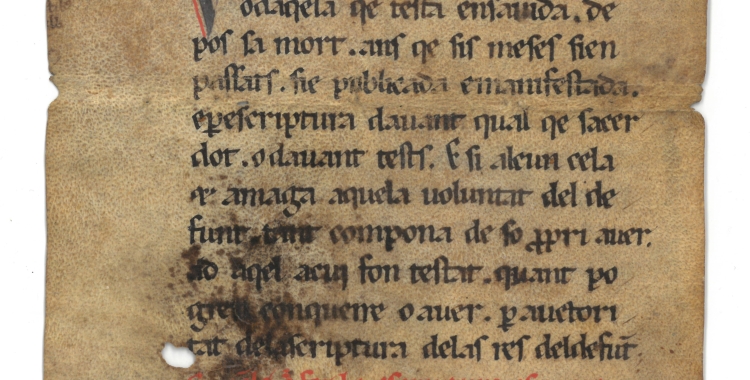 odaqela qe testa ensauida. de
pos sa mort. ans qe sis meses sien
passats. sie publicada e manifestada.
e per escriptura dauant qual qe sacer
dot. o dauant tests. E si alcun cela
ne amaga aquela uoluntat del de
funt. tant compona de so propri auer.
ad aqel acui fon testat. quant po
gre conquerre o auer. per auctori
tat dela scriptura de las res del defunt.